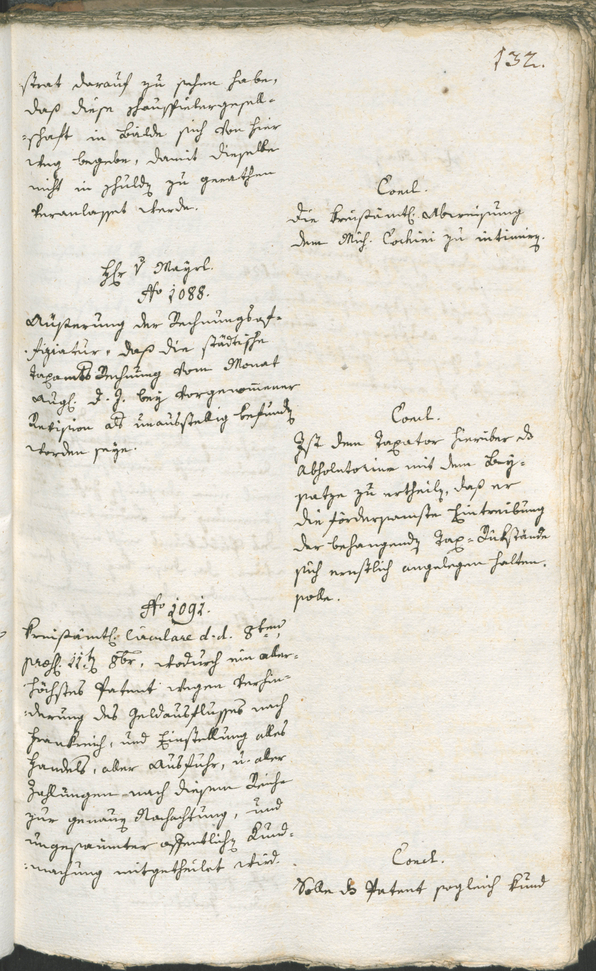 132.
strat darauf zu sehen habe,
daß diese Schauspielergesell-
=schaft in Bälde sich von hier
weg begebe, damit dieselbe
nicht in Schuldꝫ zu gerathen
veranlasset werde.
Concl.
Die kreisämtl. Abweisung
dem Mich. Cochini zu intimirꝫ.
H. v. Mayrl.
No 1088.
Äüßerung der Rechnungsof-
fiziatur, daß die städtische
Taxamts Rechnung vom Monat
Augl. d. J. bey vorgenom̅ener
Revision als unausstellig befundꝫ
worden seye.
Concl.
Ist dem Taxator hierüber ds
Absolutorium mit dem Bey-
satze zu ertheilꝫ, daß er
die förderssamste Eintreibung
der behangendꝫ Tax-Rükstände
sich ernstlich angelegen halten
solle.
No 1091.
Kreisämtl. Circulare d. d. 8ten,
præs. 11tꝫ 8br, wodurch ein aller-
höchstes Patent wegen Verhin-
=derung des Geldausflusses nach
Frankreich, und Einstellung alles
Handels, aller Ausfuhr, u. aller
Zahlungen nach diesem Reiche
zur genauꝫ Nachachtung, und
ungesäumter öffentlichꝫ Kund-
=machung mitgetheilet wird.
Concl.
Solle ds Patent sogleich kund